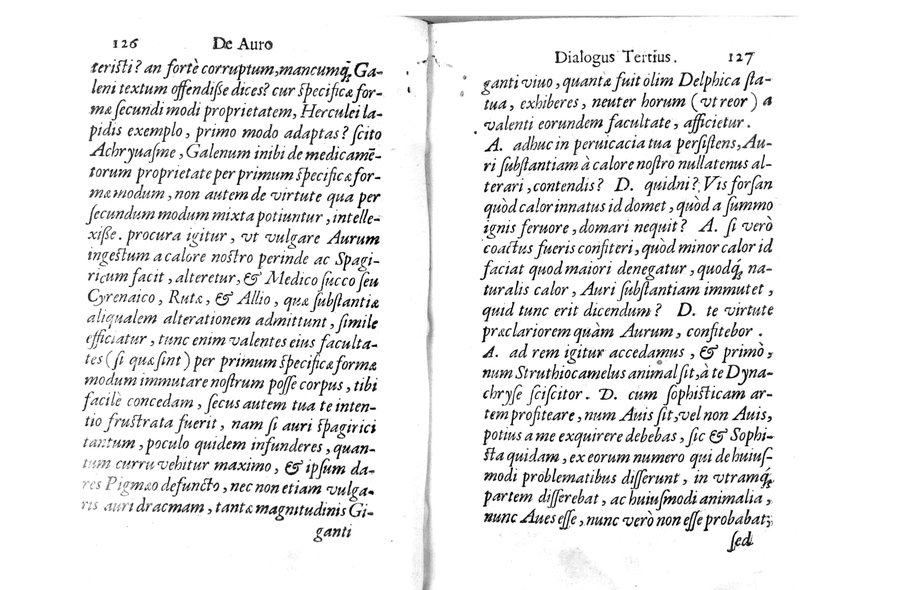 126 De Auro
teristi? an fortè corruptum, mancumq́; Ga-
leni textum offendiſſe dices? cur ſpecificæ for-
mæ ſecundi modi proprietatem, Herculei la-
pidis exemplo, primo modo adaptas? ſcito
Achryuaſme, Galenum inibi de medicamē-
torum proprietate per primum ſpecificæ for-
mæ modum, non autem de virtute qua per
ſecundum modum mixta potiuntur, intelle-
xiſſe. procura igitur, vt vulgare Aurum
ingeſtum a calore noſtro perinde ac Spagi-
ricum facit, alteretur, & Medico ſucco ſeu
Cyrenaico, Rutæ, & Allio, quæ ſubſtantiæ
aliqualem alterationem admittunt, ſimile
efficiatur, tunc enim valentes eius faculta-
tes (ſi quæ ſint) per primum ſpecificæ formæ
modum immutare noſtrum poſſe corpus, tibi
facilè concedam, ſecus autem tua te inten-
tio fruſtrata fuerit, nam ſi auri ſpagirici
tantum, poculo quidem infunderes, quan-
tum curru vehitur maximo, & ipſum da-
res Pigmæo defuncto, nec non etiam vulga-
ris auri dracmam, tantæ magnitudinis Gi-
ganti
Dialogus Tertius. 127
ganti viuo, quantæ fuit olim Delphica ſta-
tua, exhiberes, neuter horum (vt reor) a
valenti eorundem facultate, afficietur.
A. adhuc in peruicacia tua perſiſtens, Au-
ri ſubſtantiam à calore noſtro nullatenus al-
terari, contendis? D. quidni? Vis forſan
quòd calor innatus id domet, quòd a ſummo
ignis feruore, domari nequit? A. ſi verò
coactus fueris confiteri, quòd minor calor id
faciat quod maiori denegatur, quodq́; na-
turalis calor, Auri ſubſtantiam immutet,
quid tunc erit dicendum? D. te virtute
præclariorem quàm Aurum, confitebor.
A. ad rem igitur accedamus, & primò,
num Struthiocamelus animal ſit, à te Dyna-
chryſe ſciſcitor. D. cum ſophiſticam ar-
tem profiteare, num Auis ſit, vel non Auis,
potius a me exquirere debebas, ſic & Sophi-
ſta quidam, ex eorum numero qui de huiuſ-
modi problematibus diſſerunt, in vtramq́;
partem diſſerebat, ac huiuſmodi animalia,
nunc Aues eſſe, nunc verò non eſſe probabat;
ſed